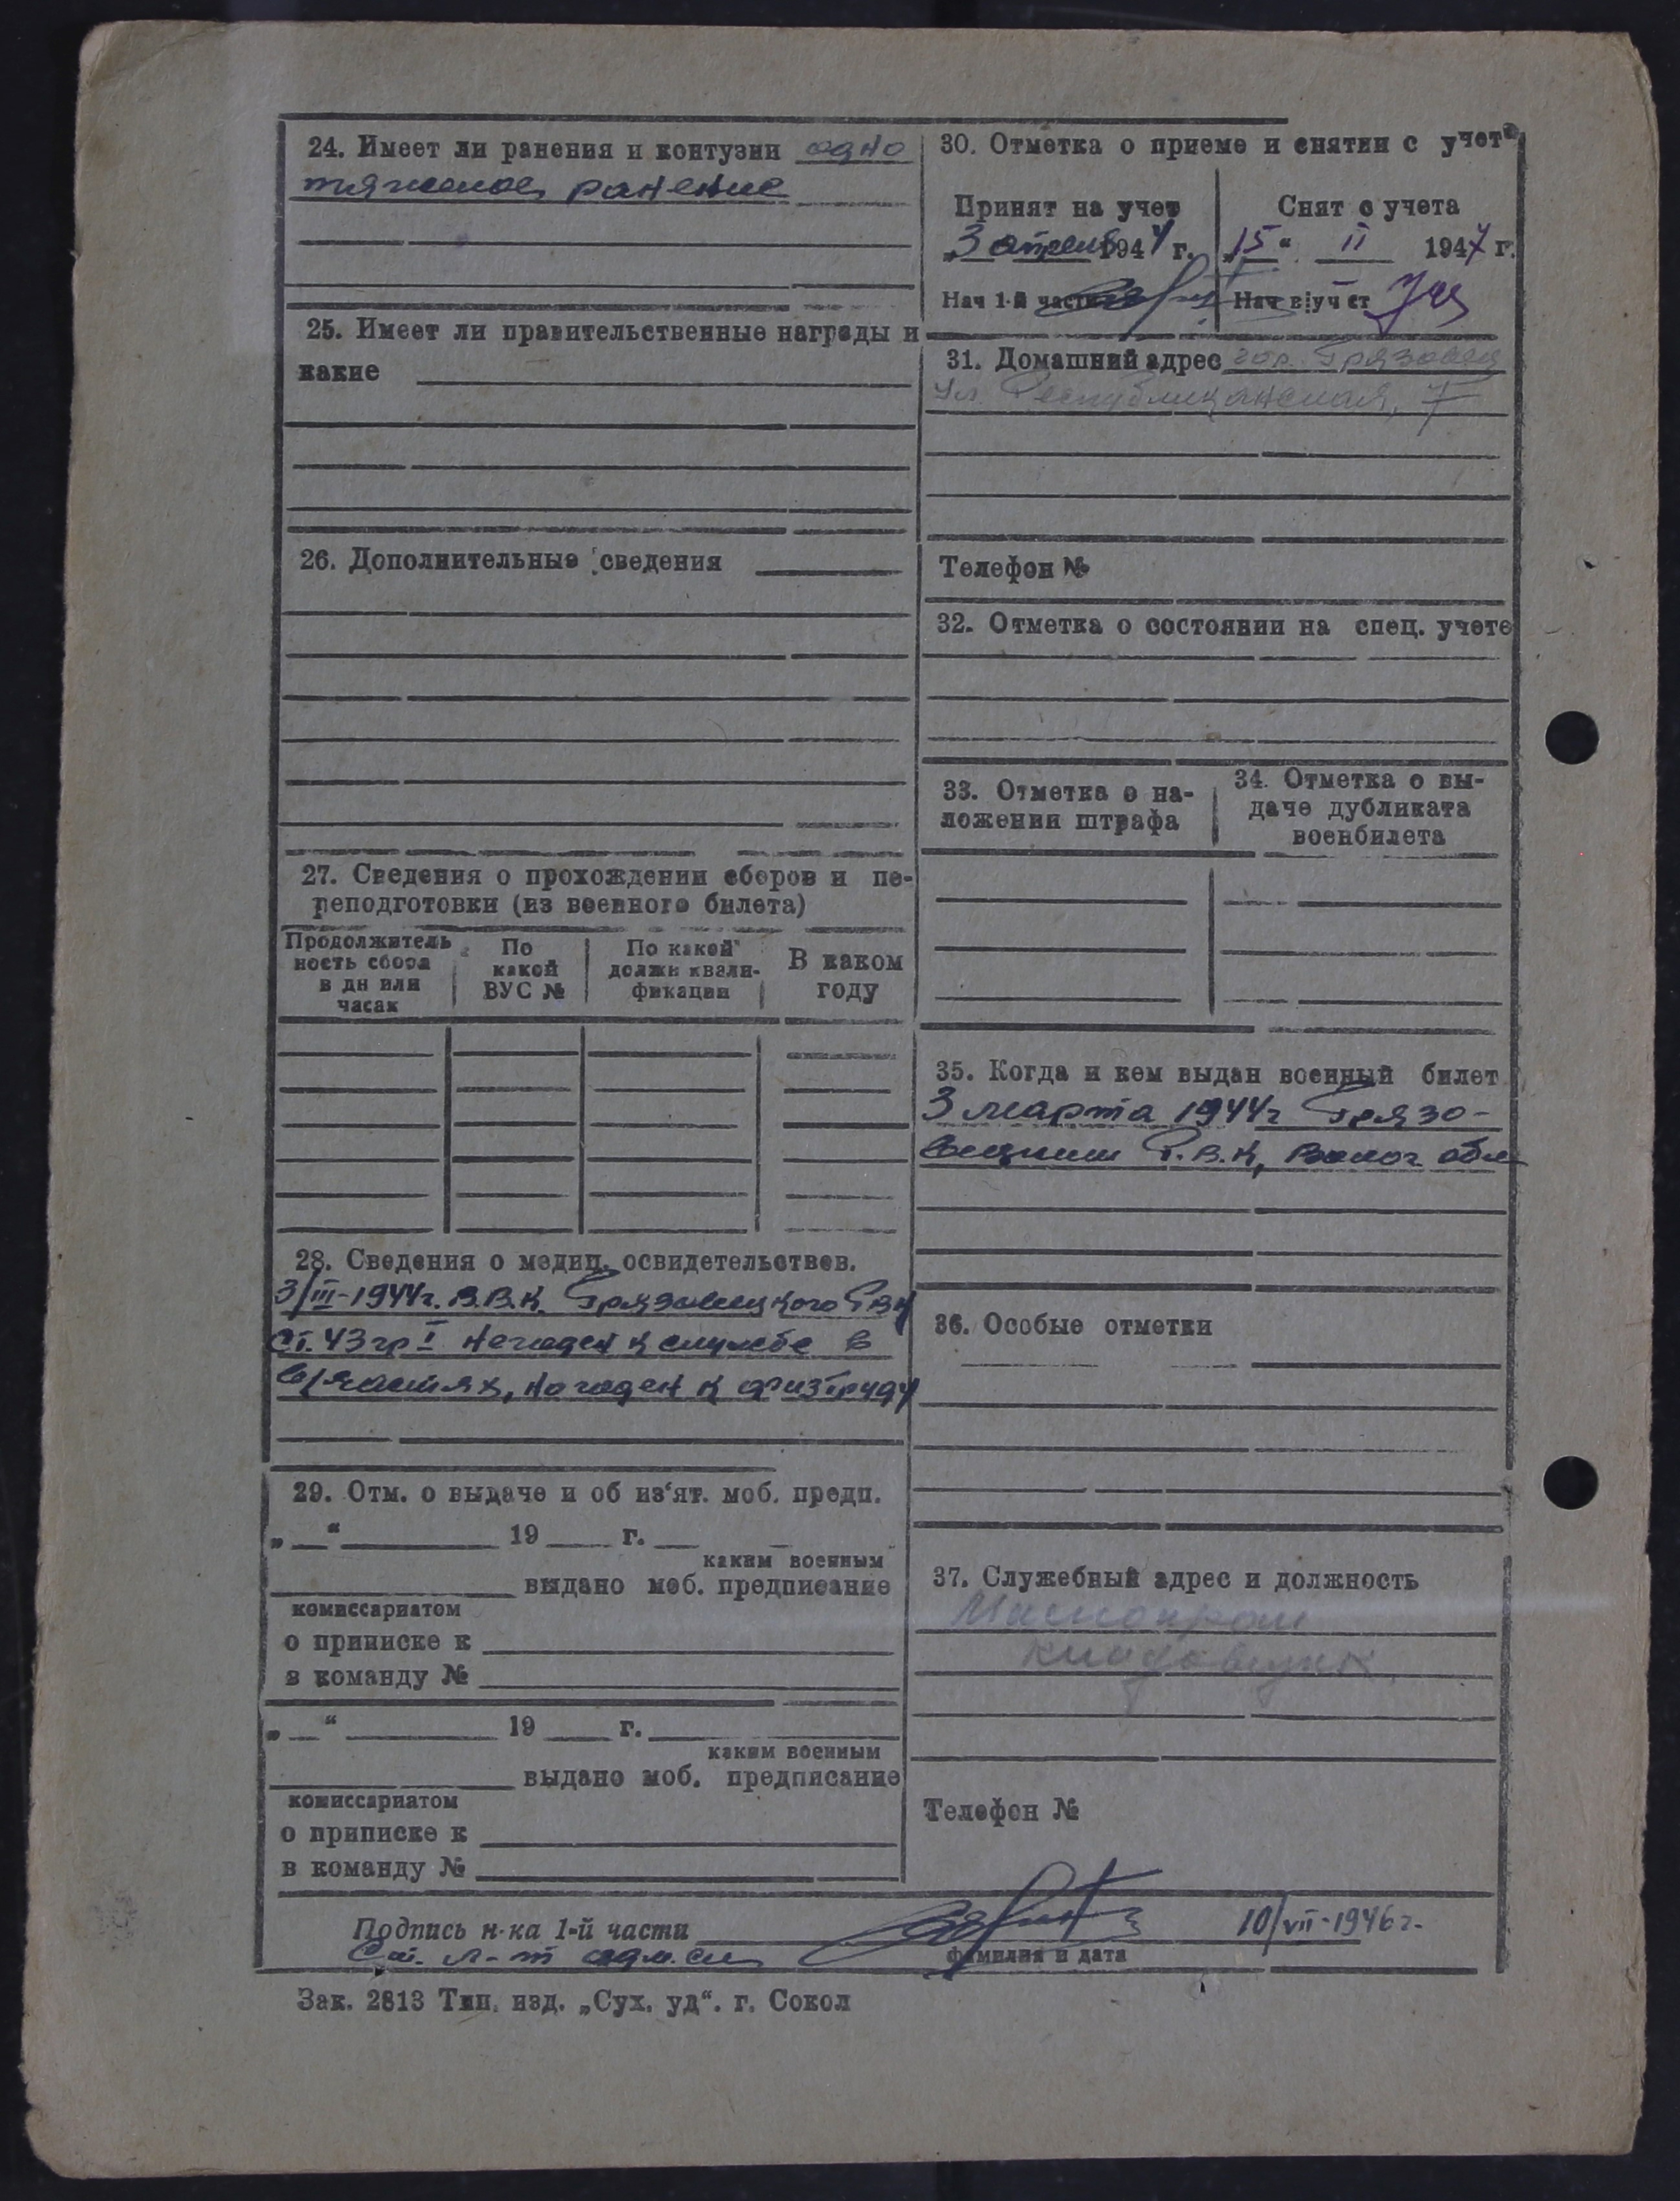 24. Имеет ли ранения и контузии одно
тяжелое ранение
25. Имеет ли правительственные награды и
какие
26. Дополнительные сведения
27. Сведения о прохождении сборов и пе-
реподготовки (из военного билета)
Продолжитель
ность сбора
в дн или
часах
По
какой
ВУС №
По какой
должн квали-
фикации
В каком
году
28. Сведения о медиц. освидетельствов.
3/III-1944г. В.В.К. Грязовецкого РВК
ст. 43 гр I негоден к службе в
в/частях, но годен к физтруду
29. Отм. о выдаче и об из'ят. моб. предп.
„ “ 19 г.
каким военным
выдано моб. предписание
комиссариатом
о приписке к
в команду №
„ “ 19 г.
каким военным
выдано моб. предписание
комиссариатом
о приписке к
в команду №
30. Отметка о приеме и снятии с учета
Принят на учет
„3 апреля 1944 г.
Нач 1-й части
Снят с учета
„15“ II 1947 г.
Нач в|уч ст
31. Домашний адрес гор. Грязовец
ул. Республиканская, 7
Телефон №
32. Отметка о состоянии на спец. учете
33. Отметка о на-
ложении штрафа
34. Отметка о вы-
даче дубликата
военбилета
35. Когда и кем выдан военный билет
3 марта 1944г Грязо-
вецким Р.В.К, Волог. обл
36. Особые отметки
37. Служебный адрес и должность
Маслопром
кладовщик
Телефон №
Подпись н-ка 1-й части
10/VII-1946 г.
Ст. л-т адм. сл
фамилия и дата
Зак. 2813 Тип. изд. „Сух. уд“. г. Сокол